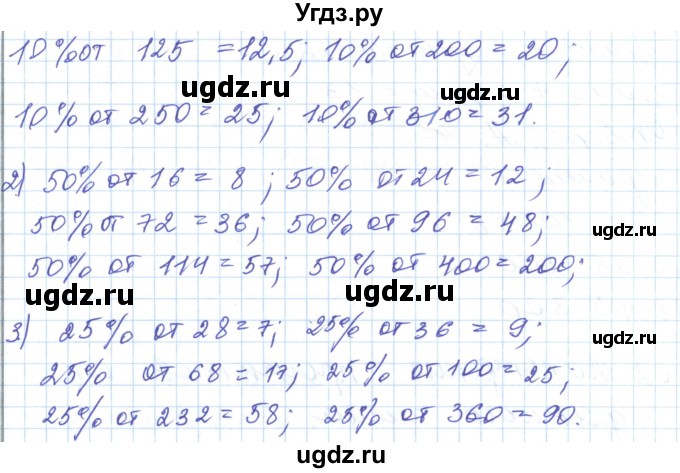 Угдз.ру
10% от 125 = 12,5; 10% от 200 = 20;
ugdz.ru
ugdz.ru
10% от 250 = 25; 10% от 310 = 31.
2) 50% от 16 = 8 ; 50% от 24 = 12 ;
50% от 72 = 36; 50% от 96 = 48;
ugdz.ru
50% от 114 = 57; 50% от 400 = 200;
ugdz.ru
ugdz.ru
3) 25% от 28 = 7; 25% от 36 = 9;
ugdz.ru
25% от 68 = 17; 25% от 100 = 25;
25% от 232 = 58; 25% от 360 = 90.
ugdz.ru
ugdz.ru